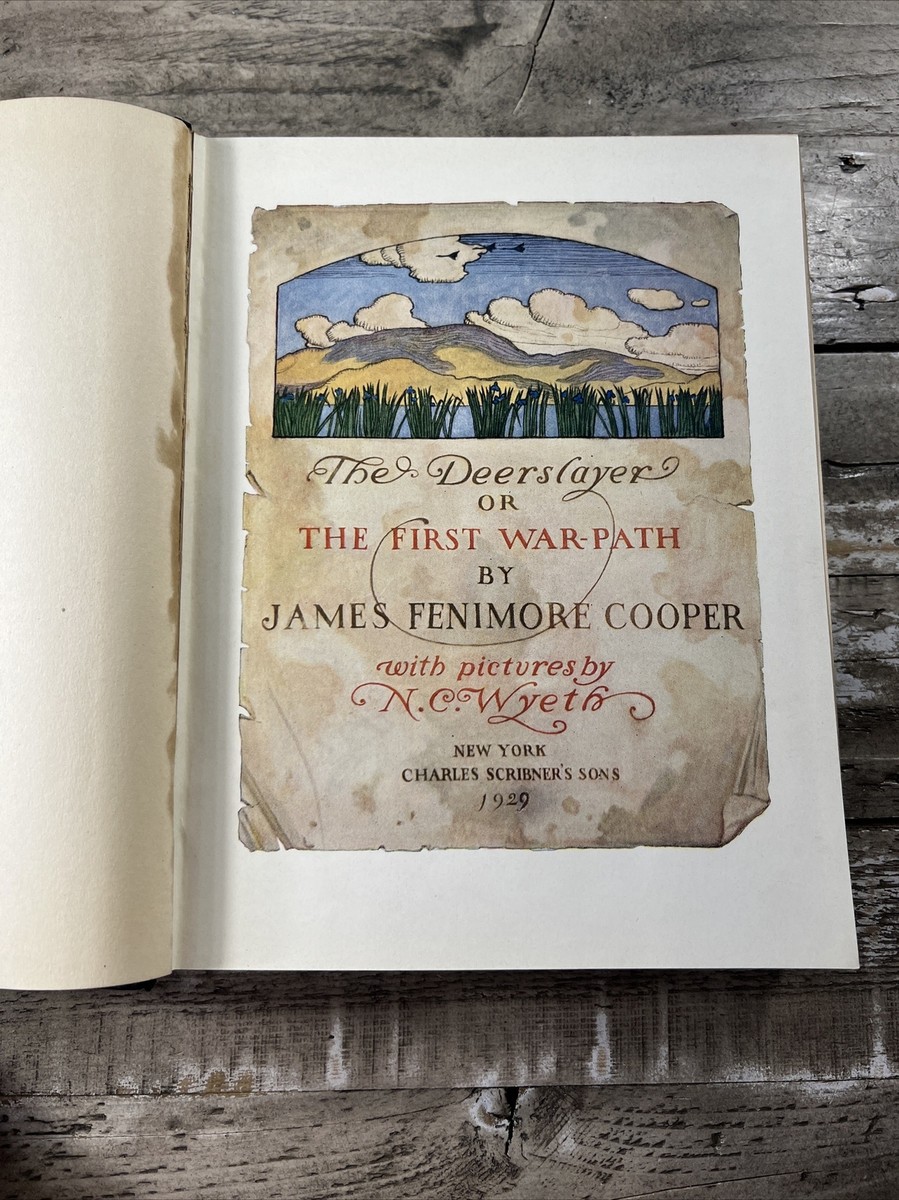 The Deerslayer
OR
THE FIRST WAR-PATH
BY
JAMES FENIMORE COOPER
with pictures by
N.C. Wyeth
NEW YORK
CHARLES SCRIBNER'S SONS
1929